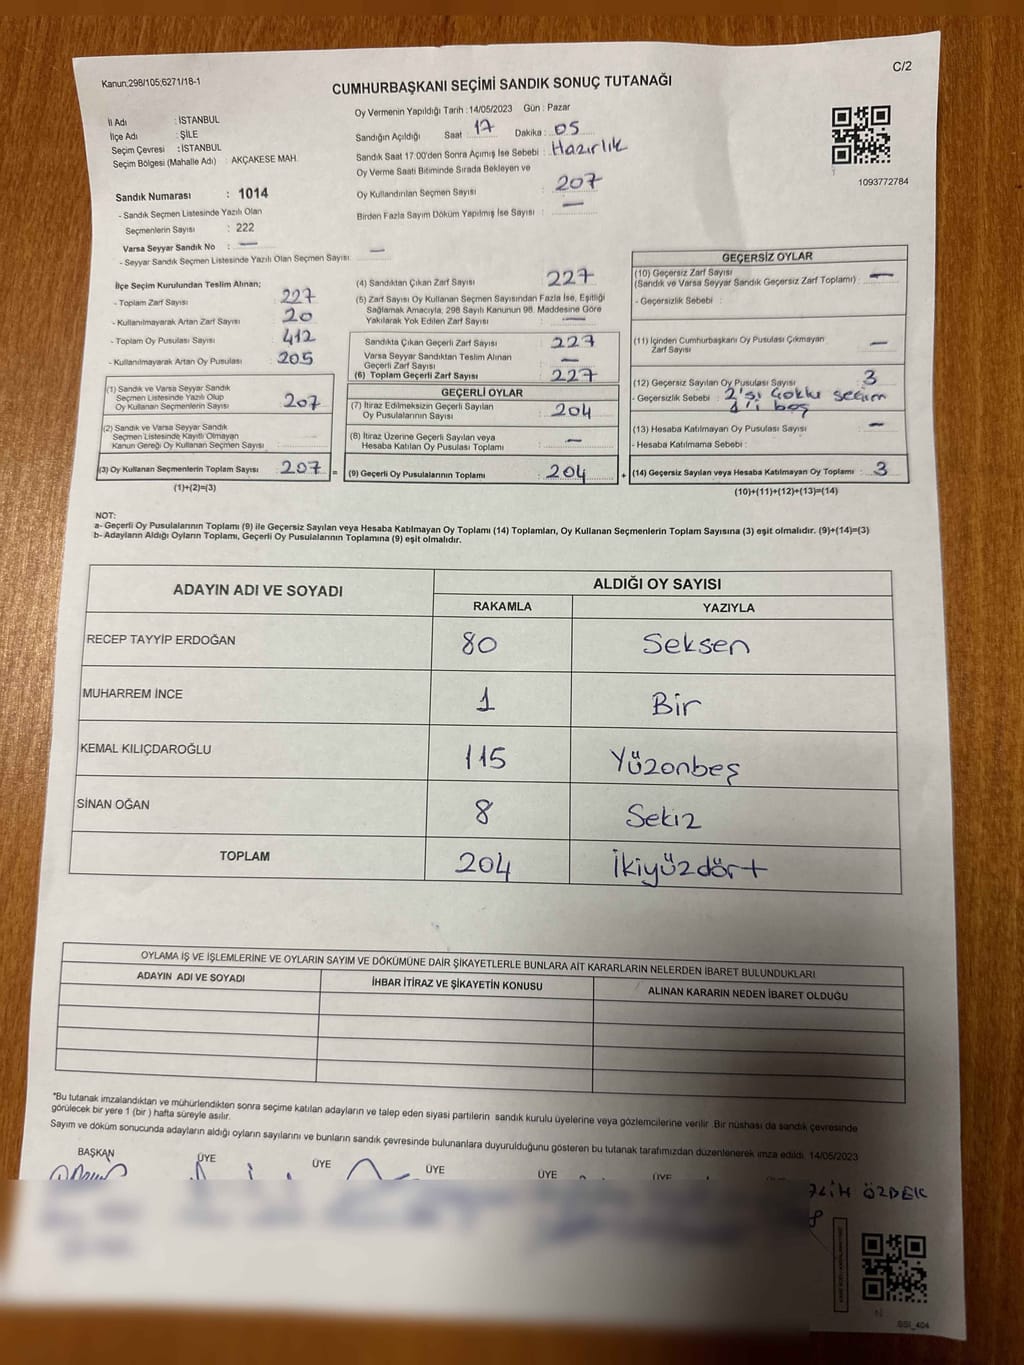 Kanun;298/105;6271/18-1
C/2
CUMHURBAŞKANI SEÇİMİ SANDIK SONUÇ TUTANAĞI
İl Adı : İSTANBUL
İlçe Adı : ŞİLE
Seçim Çevresi : İSTANBUL
Seçim Bölgesi (Mahalle Adı) : AKÇAKESE MAH.
Sandık Numarası : 1014
- Sandık Seçmen Listesinde Yazılı Olan
Seçmenlerin Sayısı : 222
Varsa Seyyar Sandık No : —
- Seyyar Sandık Seçmen Listesinde Yazılı Olan Seçmen Sayısı: —
Oy Vermenin Yapıldığı Tarih : 14/05/2023 Gün : Pazar
Sandığın Açıldığı Saat : 17 Dakika : 05
Sandık Saat 17:00'den Sonra Açımış İse Sebebi : Hazırlık
Oy Verme Saati Bitiminde Sırada Bekleyen ve
Oy Kullandırılan Seçmen Sayısı : 207
Birden Fazla Sayım Döküm Yapılmış İse Sayısı : —
1093772784
İlçe Seçim Kurulundan Teslim Alınan;
- Toplam Zarf Sayısı : 227
- Kullanılmayarak Artan Zarf Sayısı : 20
- Toplam Oy Pusulası Sayısı : 412
- Kullanılmayarak Artan Oy Pusulası : 205
(1) Sandık ve Varsa Seyyar Sandık
Seçmen Listesinde Yazılı Olup
Oy Kullanan Seçmenlerin Sayısı : 207
(2) Sandık ve Varsa Seyyar Sandık
Seçmen Listesinde Kayıtlı Olmayan
Kanun Gereği Oy Kullanan Seçmen Sayısı :
(3) Oy Kullanan Seçmenlerin Toplam Sayısı : 207 =
(1)+(2)=(3)
(4) Sandıktan Çıkan Zarf Sayısı : 227
(5) Zarf Sayısı Oy Kullanan Seçmen Sayısından Fazla İse, Eşitliği
Sağlamak Amacıyla, 298 Sayılı Kanunun 98. Maddesine Göre
Yakılarak Yok Edilen Zarf Sayısı : —
Sandıkta Çıkan Geçerli Zarf Sayısı : 227
Varsa Seyyar Sandıktan Teslim Alınan
Geçerli Zarf Sayısı : —
(6) Toplam Geçerli Zarf Sayısı : 227
GEÇERLİ OYLAR
(7) İtiraz Edilmeksizin Geçerli Sayılan
Oy Pusulasının Sayısı : 204
(8) İtiraz Üzerine Geçerli Sayılan veya
Hesaba Katılan Oy Pusulası Toplamı : —
(9) Geçerli Oy Pusulalarının Toplamı : 204 +
GEÇERSİZ OYLAR
(10) Geçersiz Zarf Sayısı
(Sandık ve Varsa Seyyar Sandık Geçersiz Zarf Toplamı) : —
- Geçersizlik Sebebi :
(11) İçinden Cumhurbaşkanı Oy Pusulası Çıkmayan
Zarf Sayısı : —
(12) Geçersiz Sayılan Oy Pusulası Sayısı : 3
- Geçersizlik Sebebi : 2'si Çoklu seçim
1'i boş
(13) Hesaba Katılmayan Oy Pusulası Sayısı : —
- Hesaba Katılmama Sebebi :
(14) Geçersiz Sayılan veya Hesaba Katılmayan Oy Toplamı : 3
(10)+(11)+(12)+(13)=(14)
NOT:
a- Geçerli Oy Pusulalarının Toplamı (9) ile Geçersiz Sayılan veya Hesaba Katılmayan Oy Toplamı (14) Toplamları, Oy Kullanan Seçmenlerin Toplam Sayısına (3) eşit olmalıdır. (9)+(14)=(3)
b- Adayların Aldığı Oyların Toplamı, Geçerli Oy Pusulalarının Toplamına (9) eşit olmalıdır.
ADAYIN ADI VE SOYADI ALDIĞI OY SAYISI
RAKAMLA YAZIYLA
RECEP TAYYİP ERDOĞAN 80 Seksen
MUHARREM İNCE 1 Bir
KEMAL KILIÇDAROĞLU 115 Yüzonbeş
SİNAN OĞAN 8 Sekiz
TOPLAM 204 İkiyüzdört
OYLAMA İŞ VE İŞLEMLERİNE VE OYLARIN SAYIM VE DÖKÜMÜNE DAİR ŞİKAYETLERLE BUNLARA AİT KARARLARIN NELERDEN İBARET BULUNDUKLARI
ADAYIN ADI VE SOYADI İHBAR İTİRAZ VE ŞİKAYETİN KONUSU ALINAN KARARIN NEDEN İBARET OLDUĞU
*Bu tutanak imzalandıktan ve mühürlendikten sonra seçime katılan adayların ve talep eden siyasi partilerin sandık kurulu üyelerine veya gözlemcilerine verilir. Bir nüshası da sandık çevresinde
görülecek bir yere 1 (bir ) hafta süreyle asılır.
Sayım ve döküm sonucunda adayların aldığı oyların sayılarını ve bunların sandık çevresinde bulunanlara duyurulduğunu gösteren bu tutanak tarafımızdan düzenlenerek imza edildi. 14/05/2023
BAŞKAN ÜYE ÜYE ÜYE ÜYE ÜYE
ÖZBEK
SSI_404